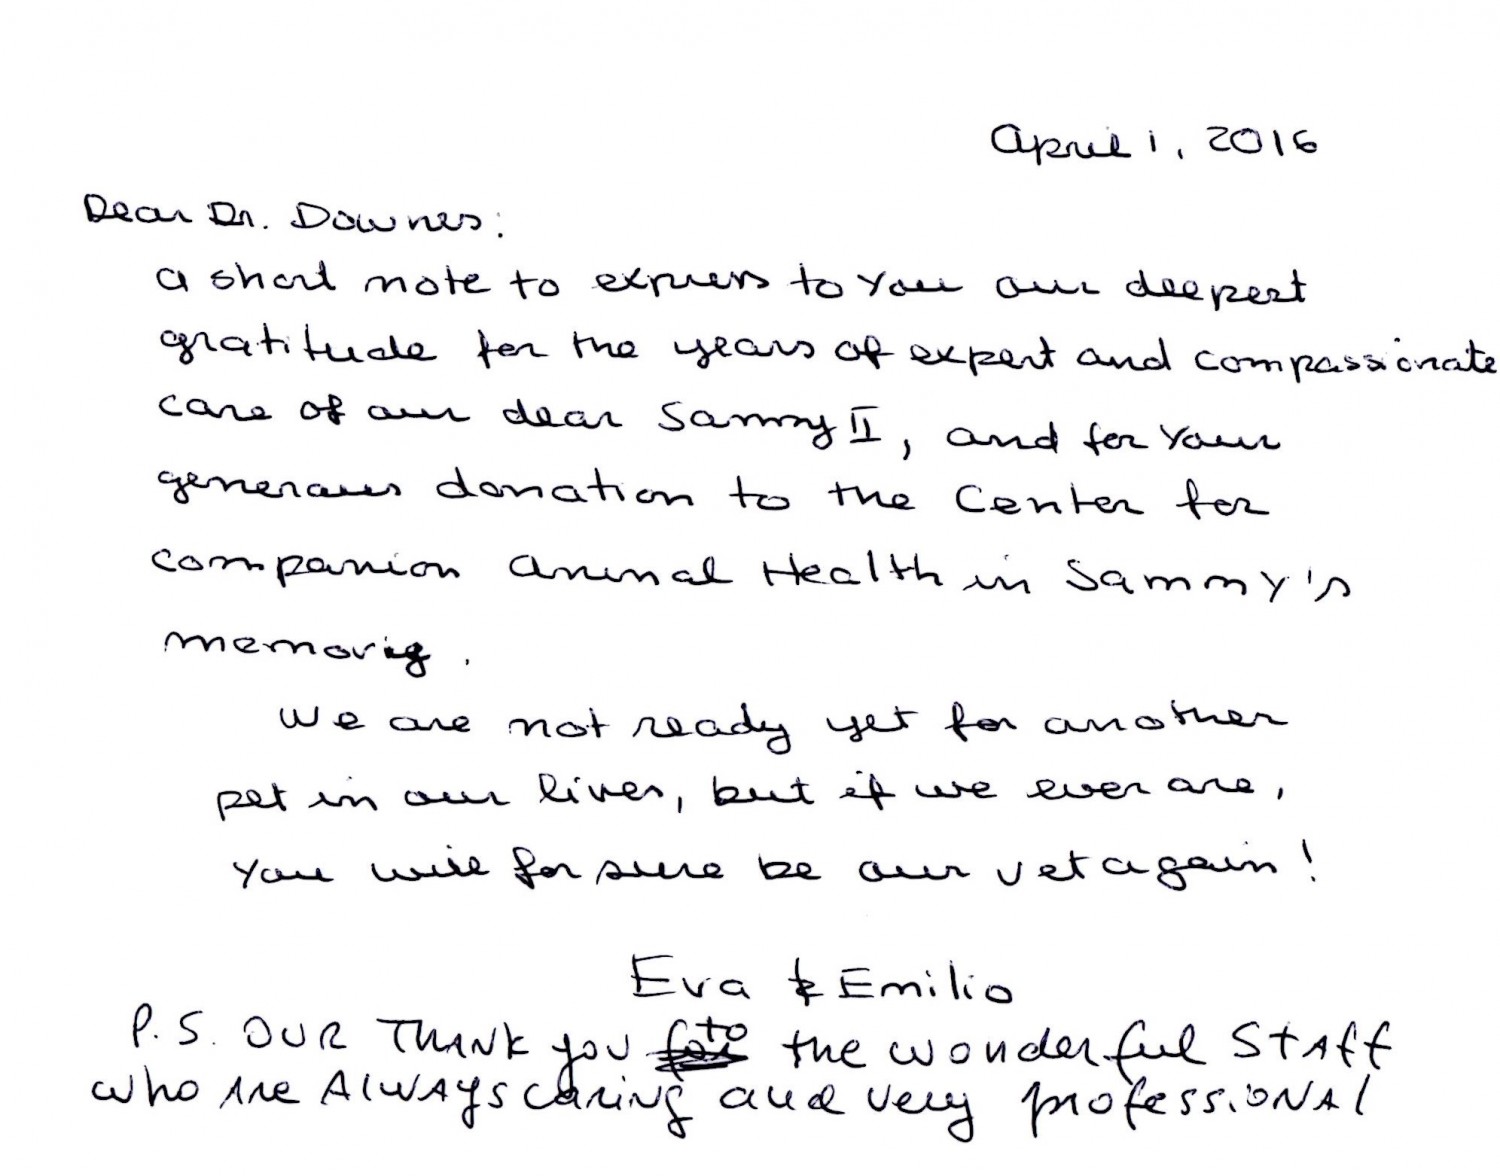 April 1, 2016
Dear Dr. Downes:
a short note to express to you our deepest
gratitude for the years of expert and compassionate
care of our dear Sammy II, and for your
generous donation to the Center for
companion animal Health in Sammy's
memory.
We are not ready yet for another
pet in our lives, but if we ever are,
you will for sure be our vet again!
Eva & Emilio
P.S. OUR THANK you to the wonderful Staff
who are Always caring and very professional